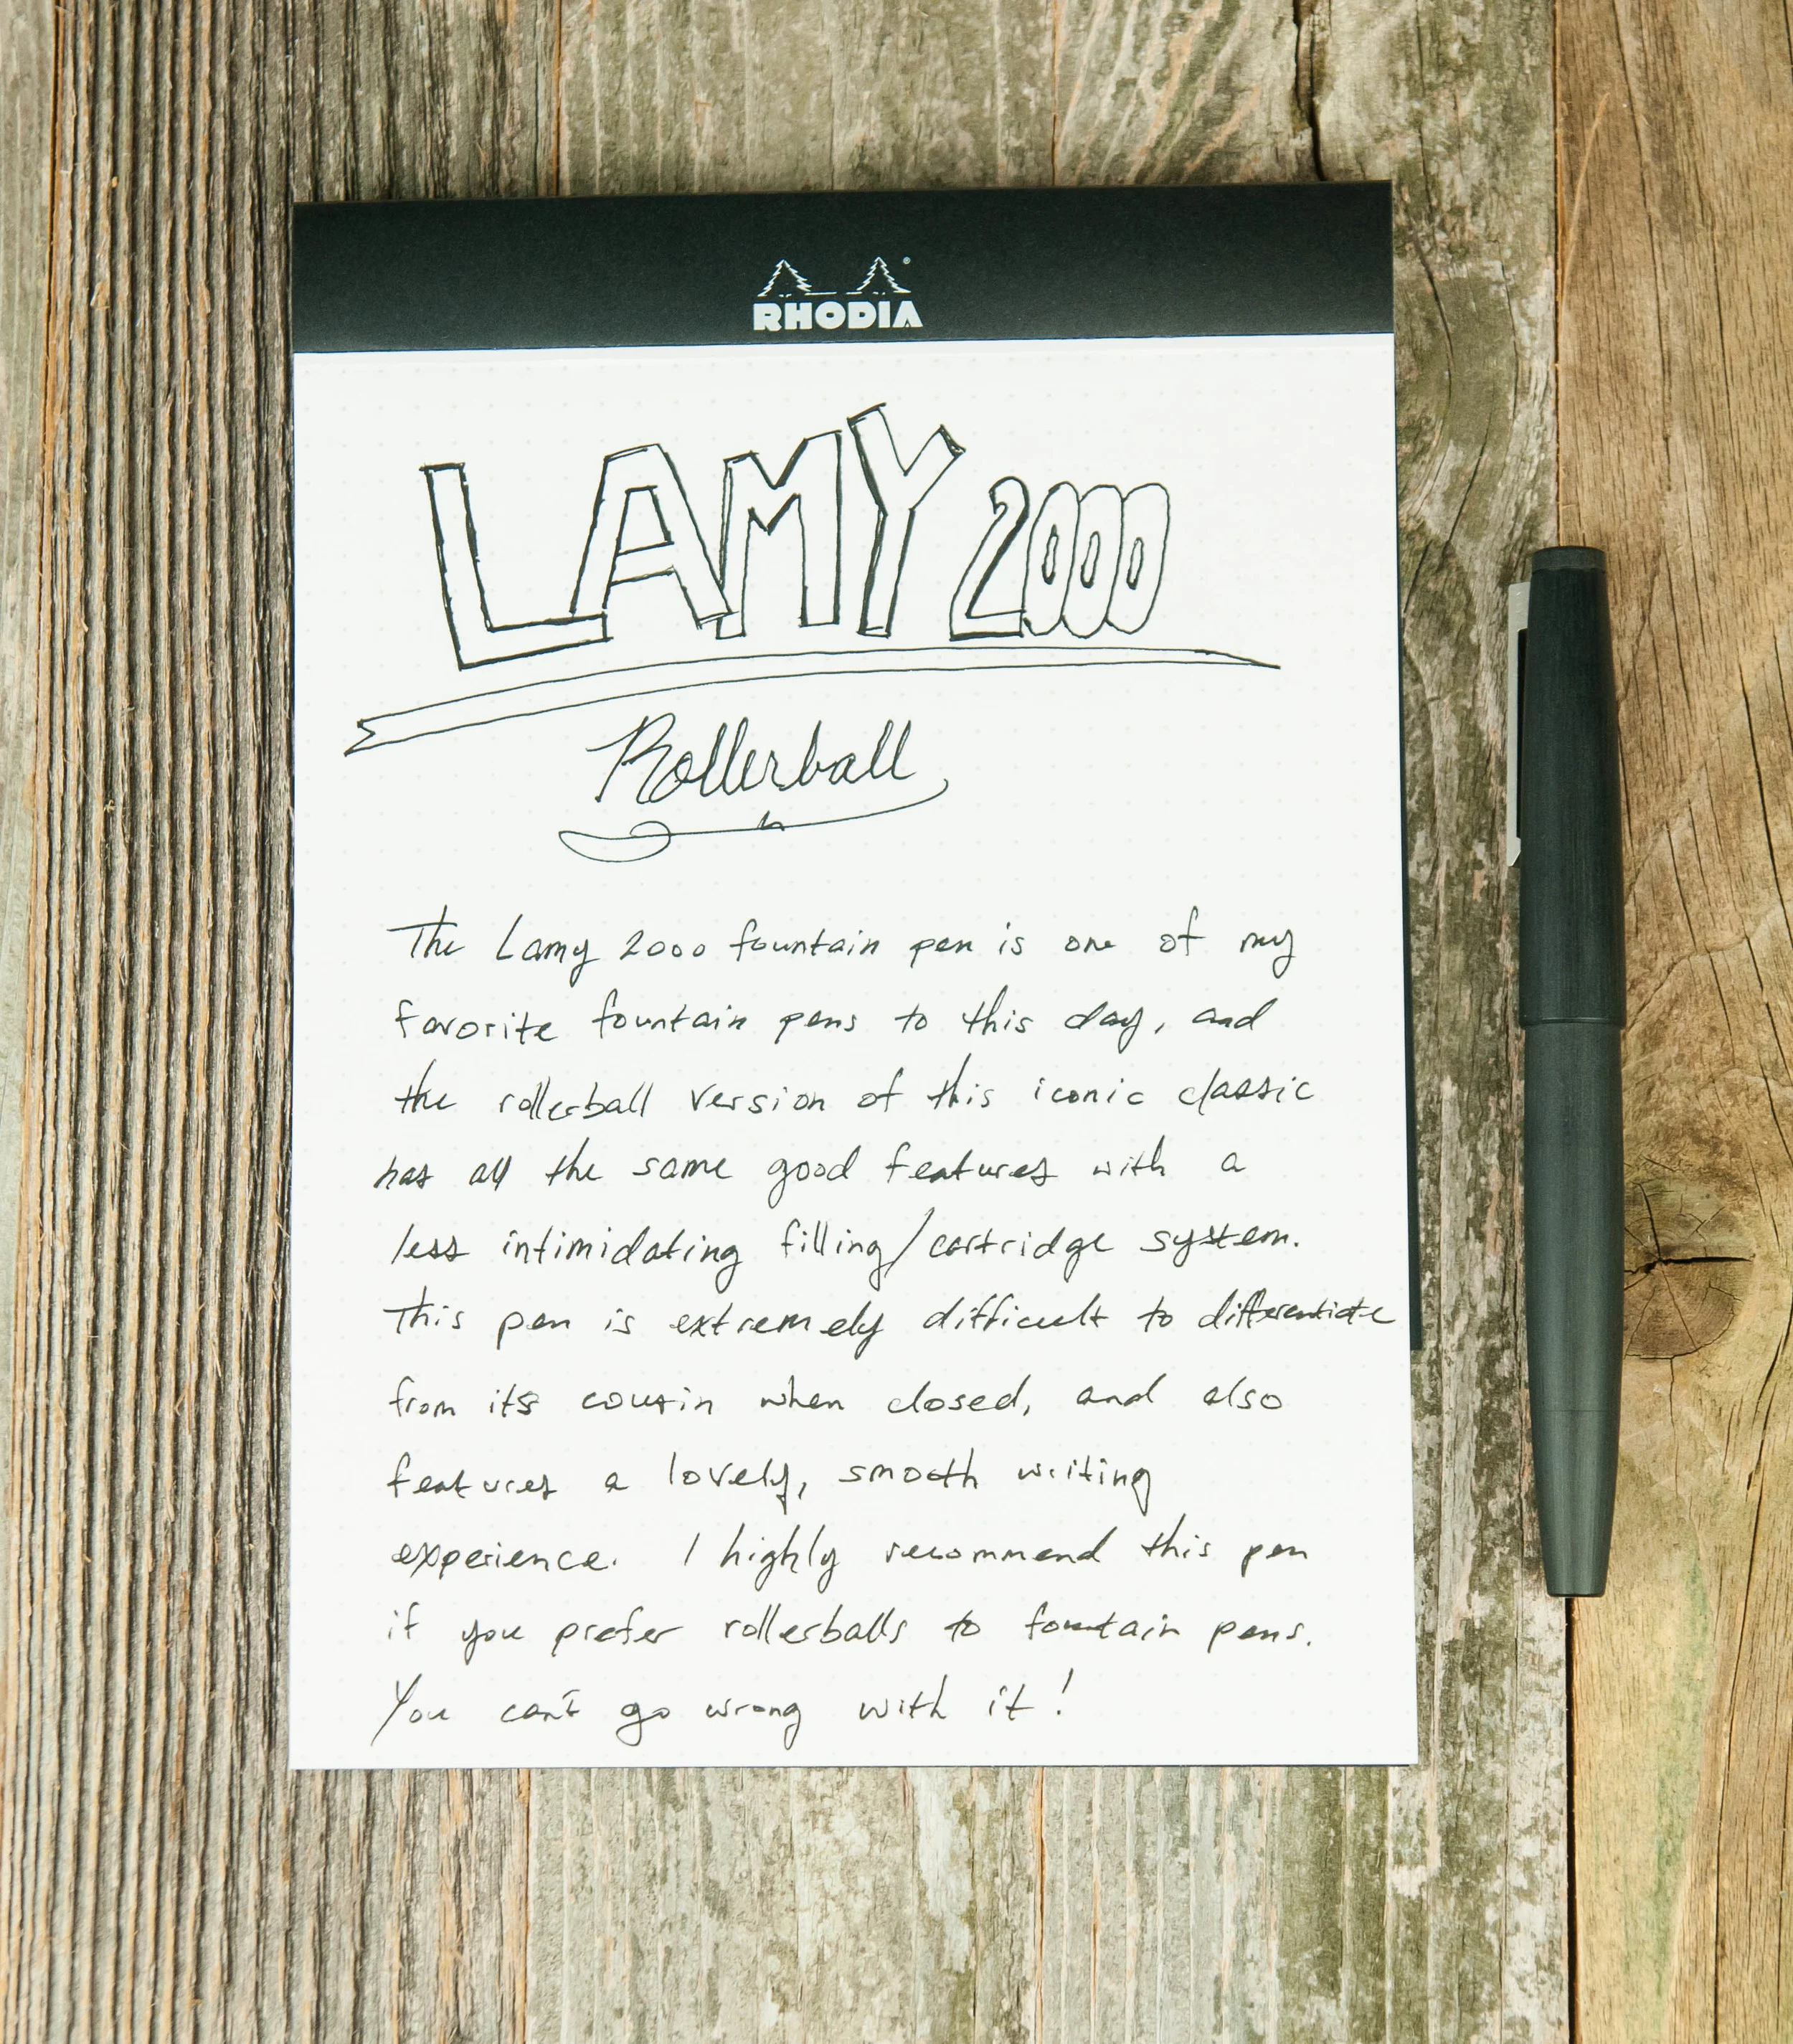 RHODIA
LAMY 2000
Rollerball
The Lamy 2000 fountain pen is one of my
favorite fountain pens to this day, and
the rollerball version of this iconic classic
has all the same good features with a
less intimidating filling/cartridge system.
This pen is extremely difficult to differentiate
from its cousin when closed, and also
features a lovely, smooth writing
experience. I highly recommend this pen
if you prefer rollerballs to fountain pens.
You can't go wrong with it!